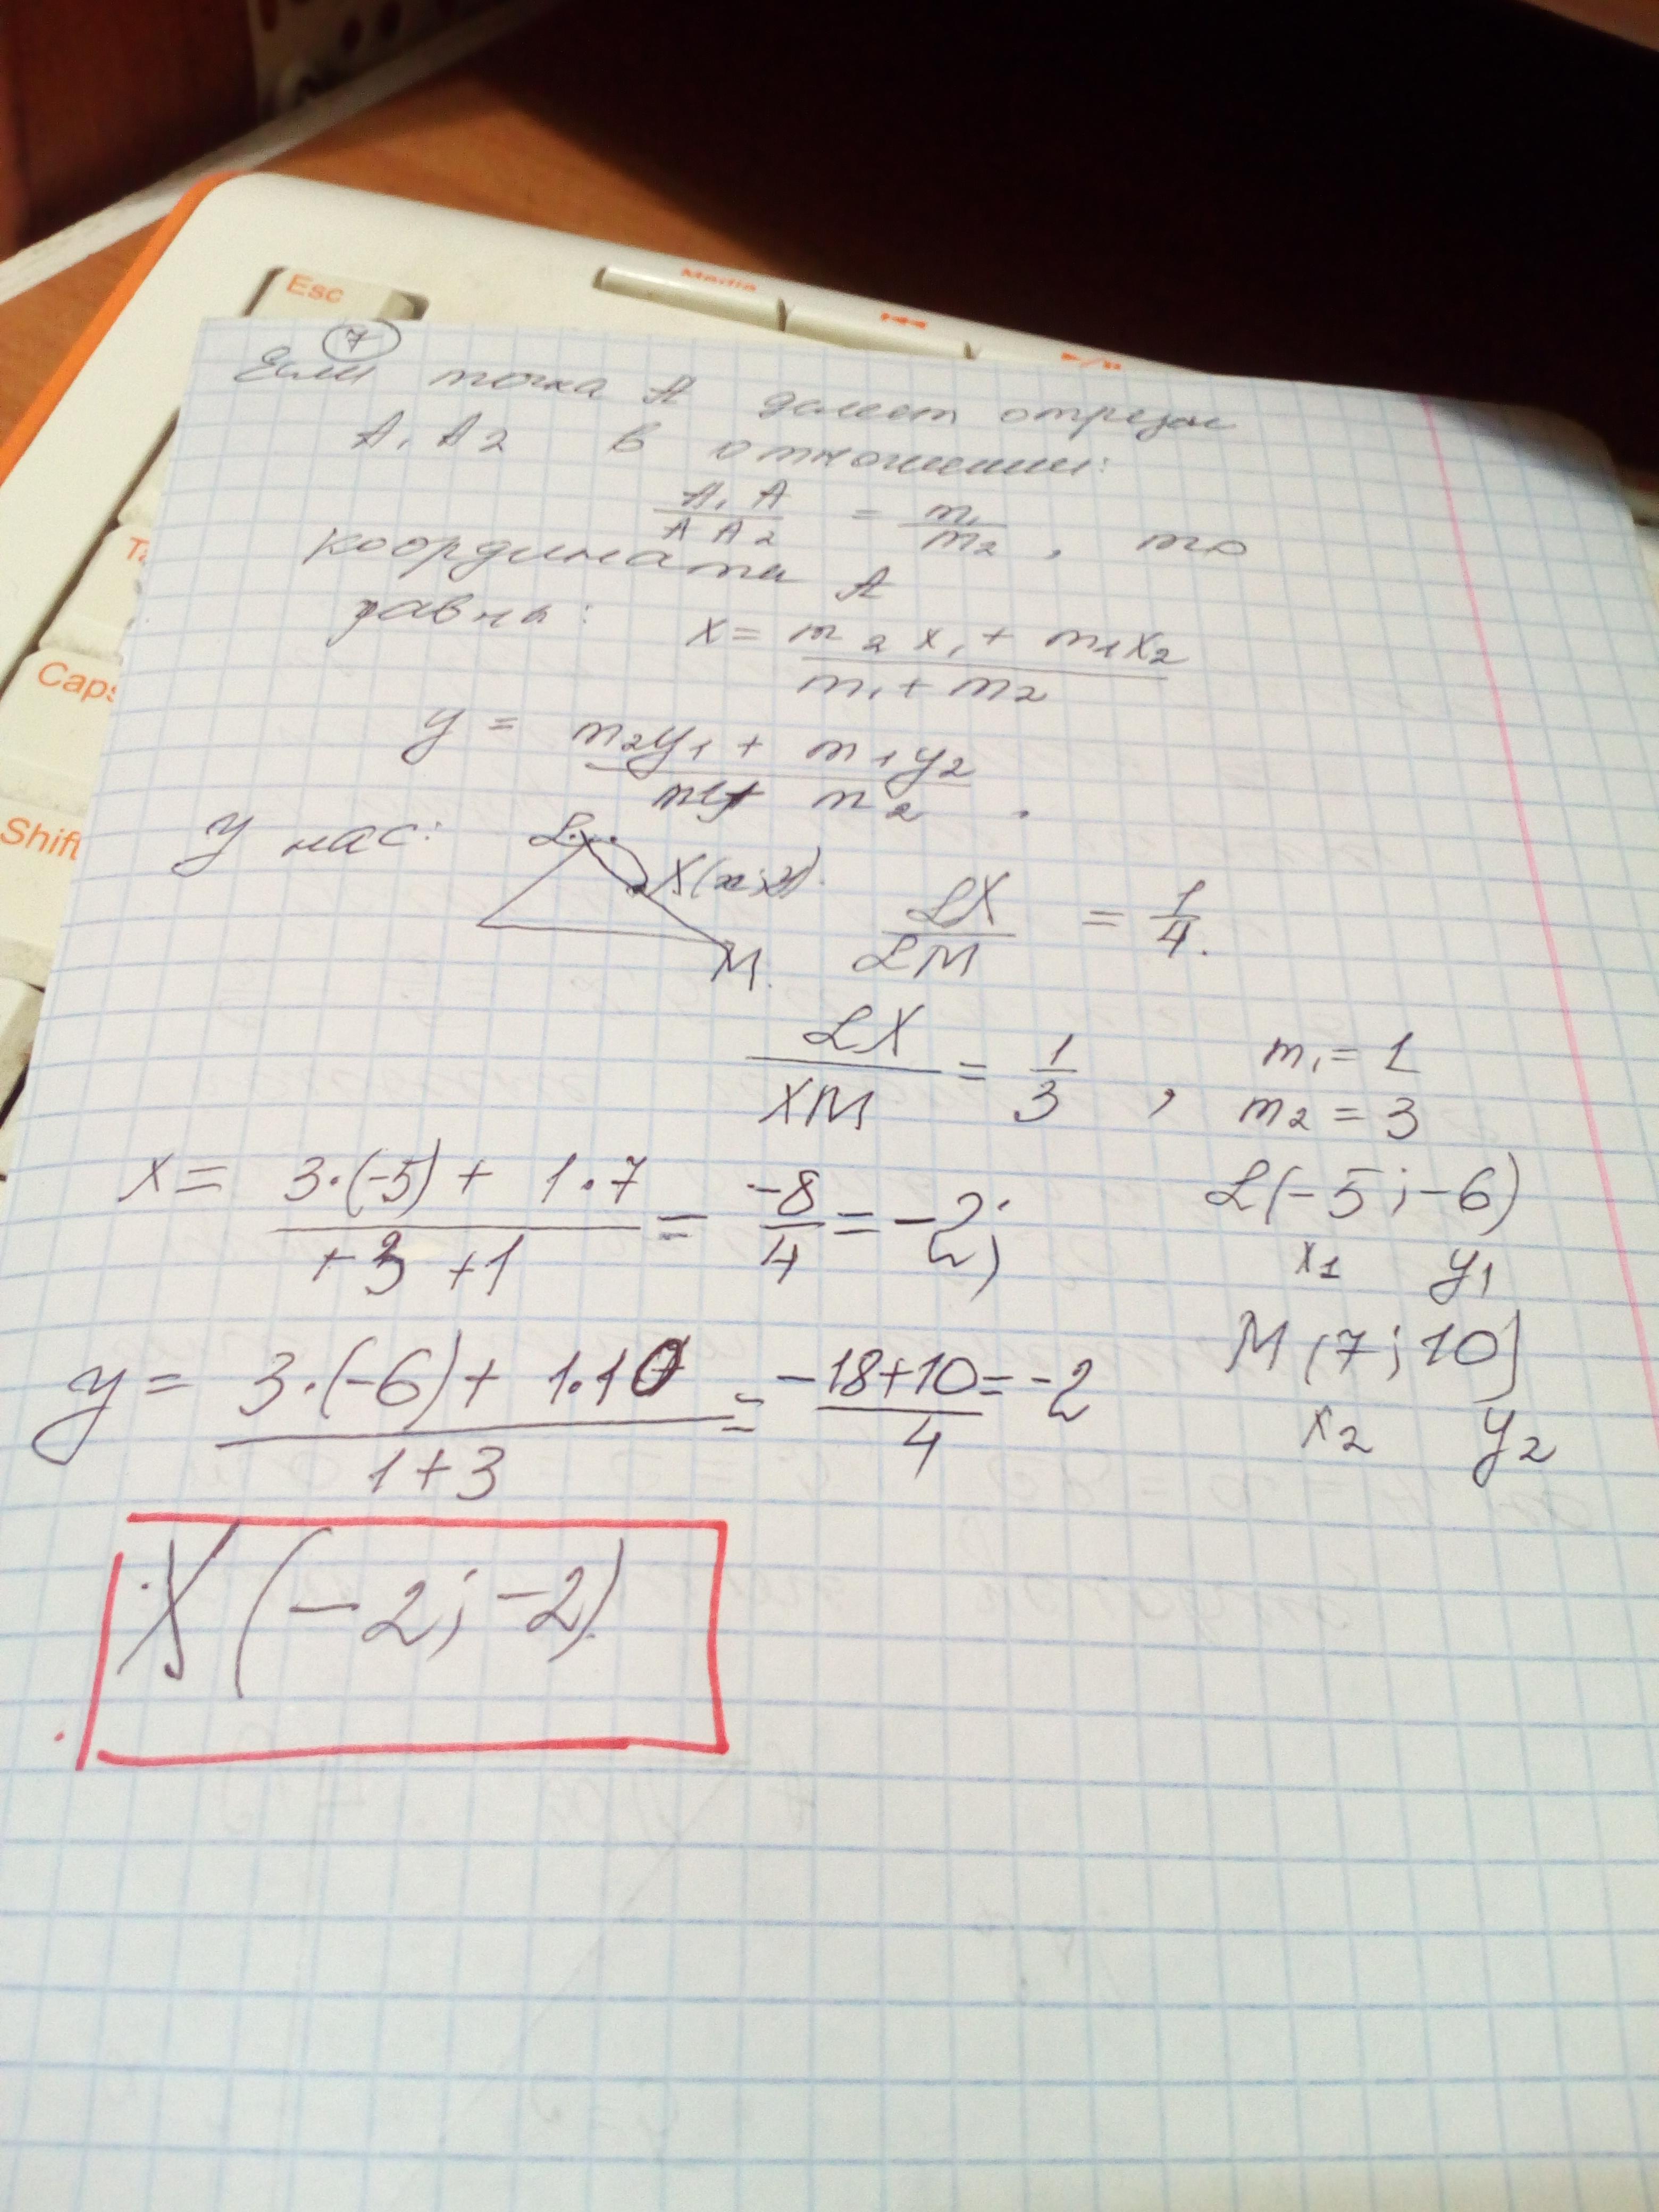 Esc
Media
Caps
Shift
7
Если точка A делит отрезок
A₁A₂ в отношении:
A₁A / AA₂ = m₁ / m₂, то
координаты A
равны: x = (m₂x₁ + m₁x₂) / (m₁ + m₂)
y = (m₂y₁ + m₁y₂) / (m₁ + m₂).
У нас: L X(x; y). M
LX / LM = 1/4.
LX / XM = 1/3, m₁ = 1
m₂ = 3
x = (3·(-5) + 1·7) / (+3 +1) = -8/4 = -2;
L(-5; -6)
x₁ y₁
y = (3·(-6) + 1·10) / (1+3) = (-18+10)/4 = -2
M(7; 10)
x₂ y₂
X(-2; -2)